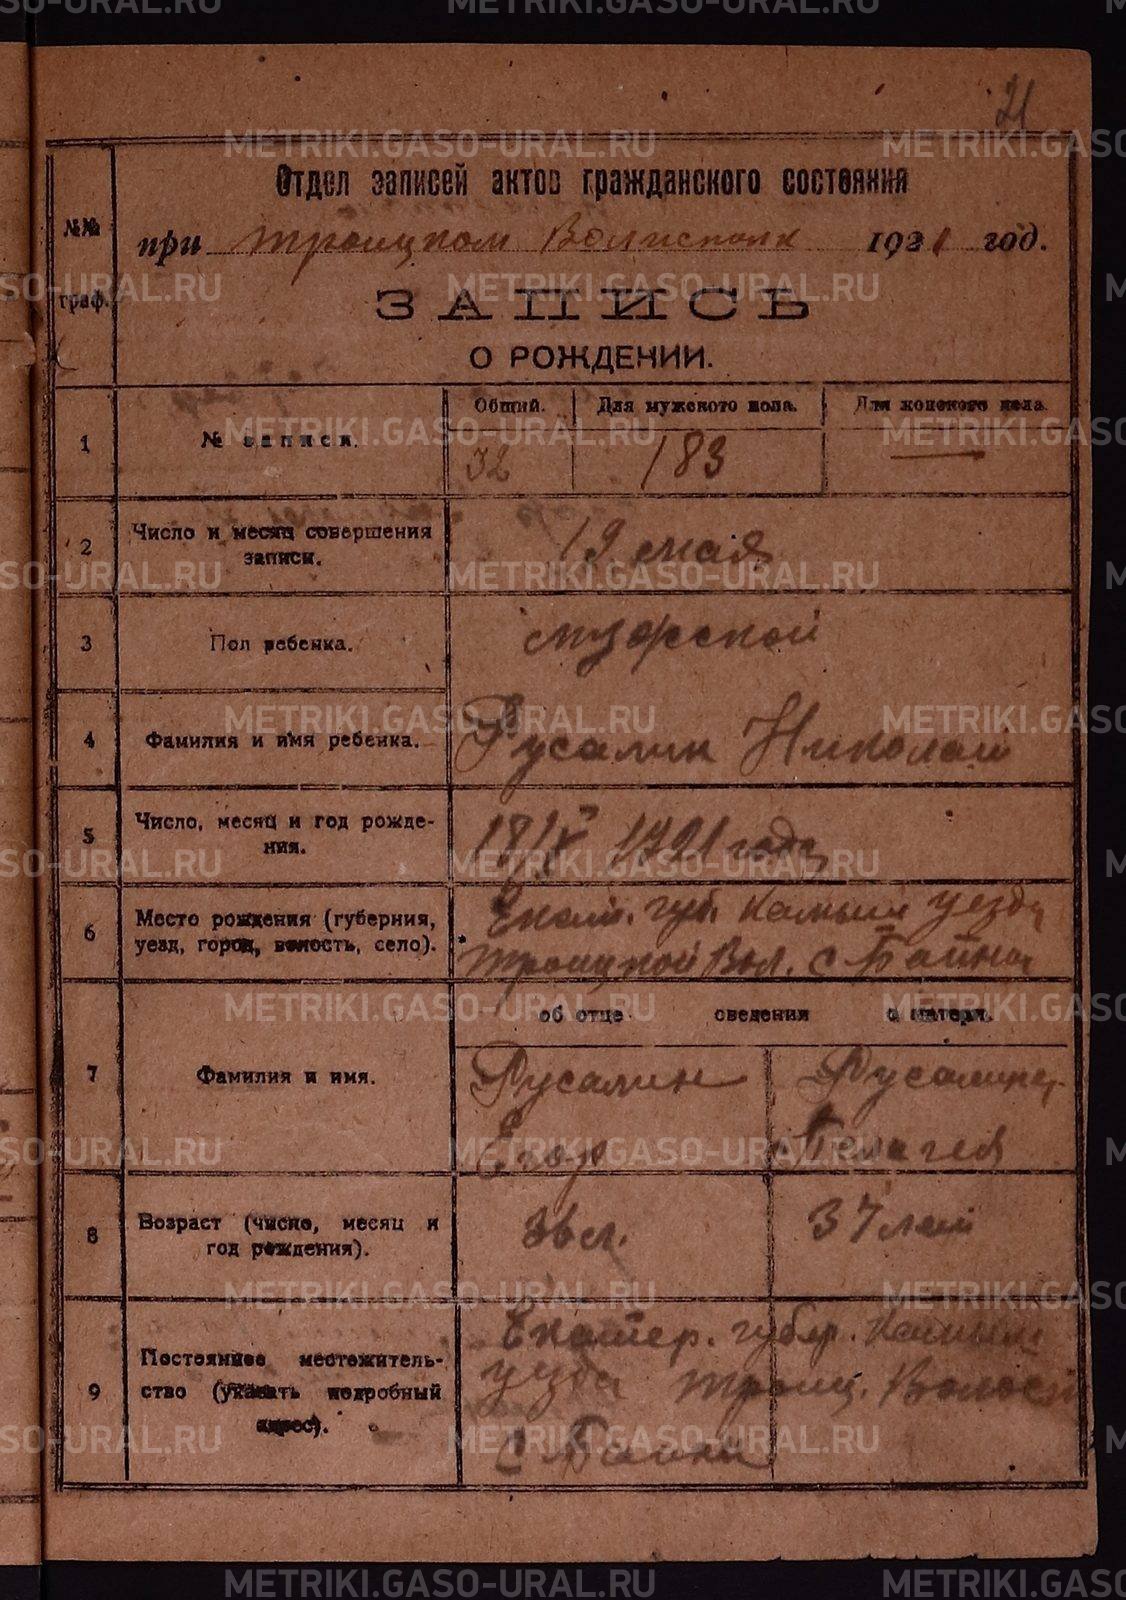 21
Отдел записей актов гражданского состояния
№№ граф.
при Троицком Волисполк 1921 год.
ЗАПИСЬ
О РОЖДЕНИИ.
1
№ записи.
Общий. Для мужского пола. Для женского пола.
32 183 —
2
Число и месяц совершения
записи.
19 мая
3
Пол ребенка.
мужской
4
Фамилия и имя ребенка.
Русалин Николай
5
Число, месяц и год рожде-
ния.
18/V 1921 года
6
Место рождения (губерния,
уезд, город, волость, село).
Екат. губ. Камыш уезда
Троицкой Вол. с Байны
об отце сведения о матери.
7
Фамилия и имя.
Русалин Русалина
Егор Пелагея
8
Возраст (число, месяц и
год рождения).
36 л. 37 лет
9
Постоянное местожитель-
ство (указать подробный
адрес).
Екатер. губер. Камышл
уезда Троиц. Волости
с Байны
METRIKI.GASO-URAL.RU